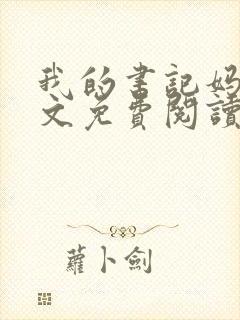 我的書記媽
文免費閱讀
蘿卜劍